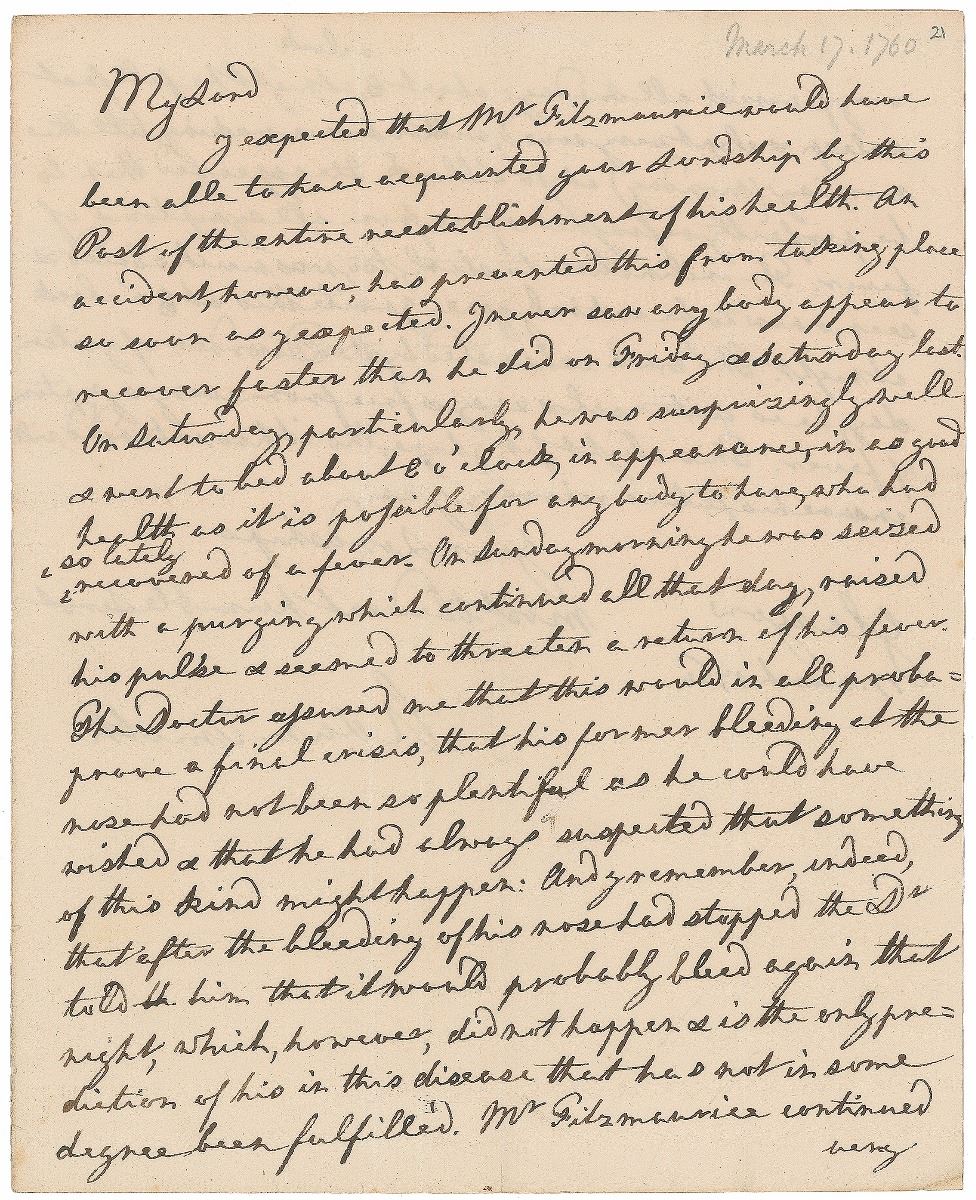 March 17. 1760 21
My Lord
I expected that Mr Fitzmaurice would have
been able to have acquainted your Lordship by this
Post of the entire reestablishment of his health. An
accident, however, has prevented this from taking place
so soon as I expected. I never saw any body appear to
recover faster than he did on Friday & Saturday last.
On Saturday, particularly, he was surprizingly well
& went to bed about 8 o'clock, in appearance, in as good
health as it is possible for any body to have, who had
so lately
recovered of a fever. On Sunday morning he was seized
with a purging which continued all that day, raised
his pulse & seemed to threaten a return of his fever.
The Doctor assured me that this would in all proba=
prove a final crisis, that his former bleeding at the
nose had not been so plentiful as he could have
wished & that he had always suspected that something
of this kind might happen: And I remember, indeed,
that after the bleeding of his nose had stopped the Dr
told him that it would probably bleed again that
night, which, however, did not happen & is the only pre=
diction of his in this disease that has not in some
degree been fulfilled. Mr Fitzmaurice continued
very